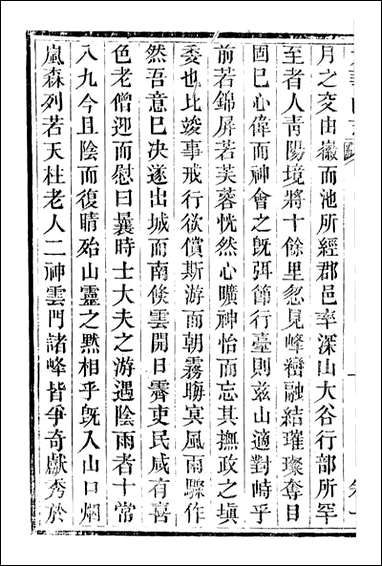 月之交由徽而池所經郡邑率深山大谷行部所罕
至者人青陽境將十餘里忽見峰巒融結璀璨奪目
固已心偉而神會之旣弭節行臺則兹山適對峙乎
前若錦屏若芙蓉恍然心曠神怡而忘其撫政之塡
委也比竣事戒行欲償斯游而朝霧晦㝠風雨驟作
然吾意已决遂出城而南倏雲開日霽吏民咸有喜
色老僧迎而慰曰曩時士大夫之游遇陰雨者十常
八九今且陰而復晴殆山靈之黙相乎旣入山口烟
嵐森列若天柱老人二神雲門諸峰皆爭奇獻秀於